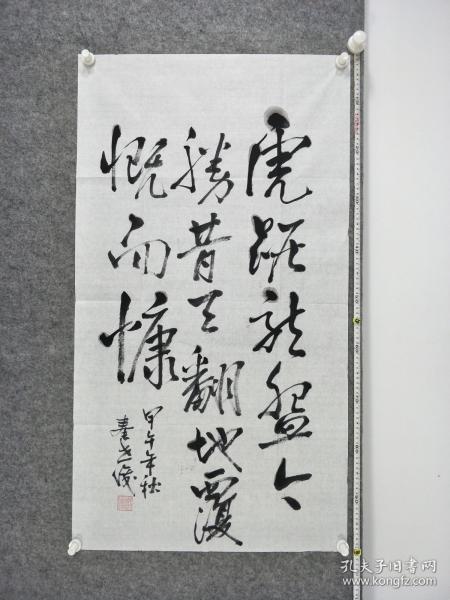 虎踞龙盘今
胜昔天翻地覆
慨而慷
甲午年秋
孔夫子旧书网
www.kongfz.com